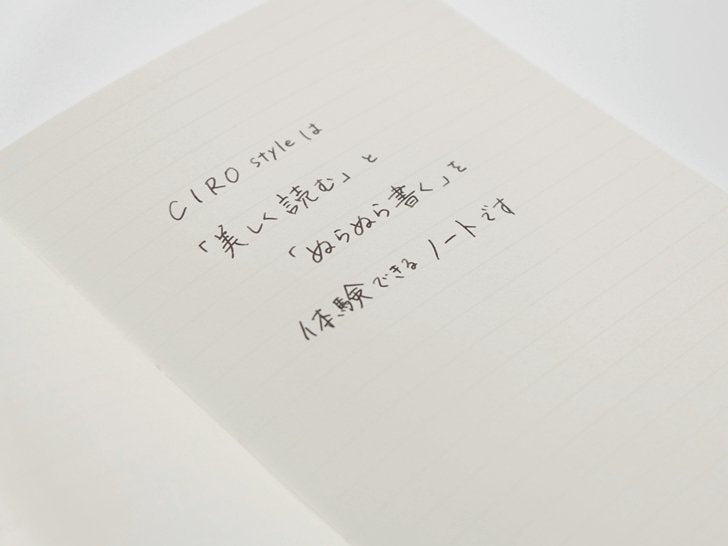 CIRO styleは
「美しく読む」と
「ぬらぬら書く」を
体験できるノートです